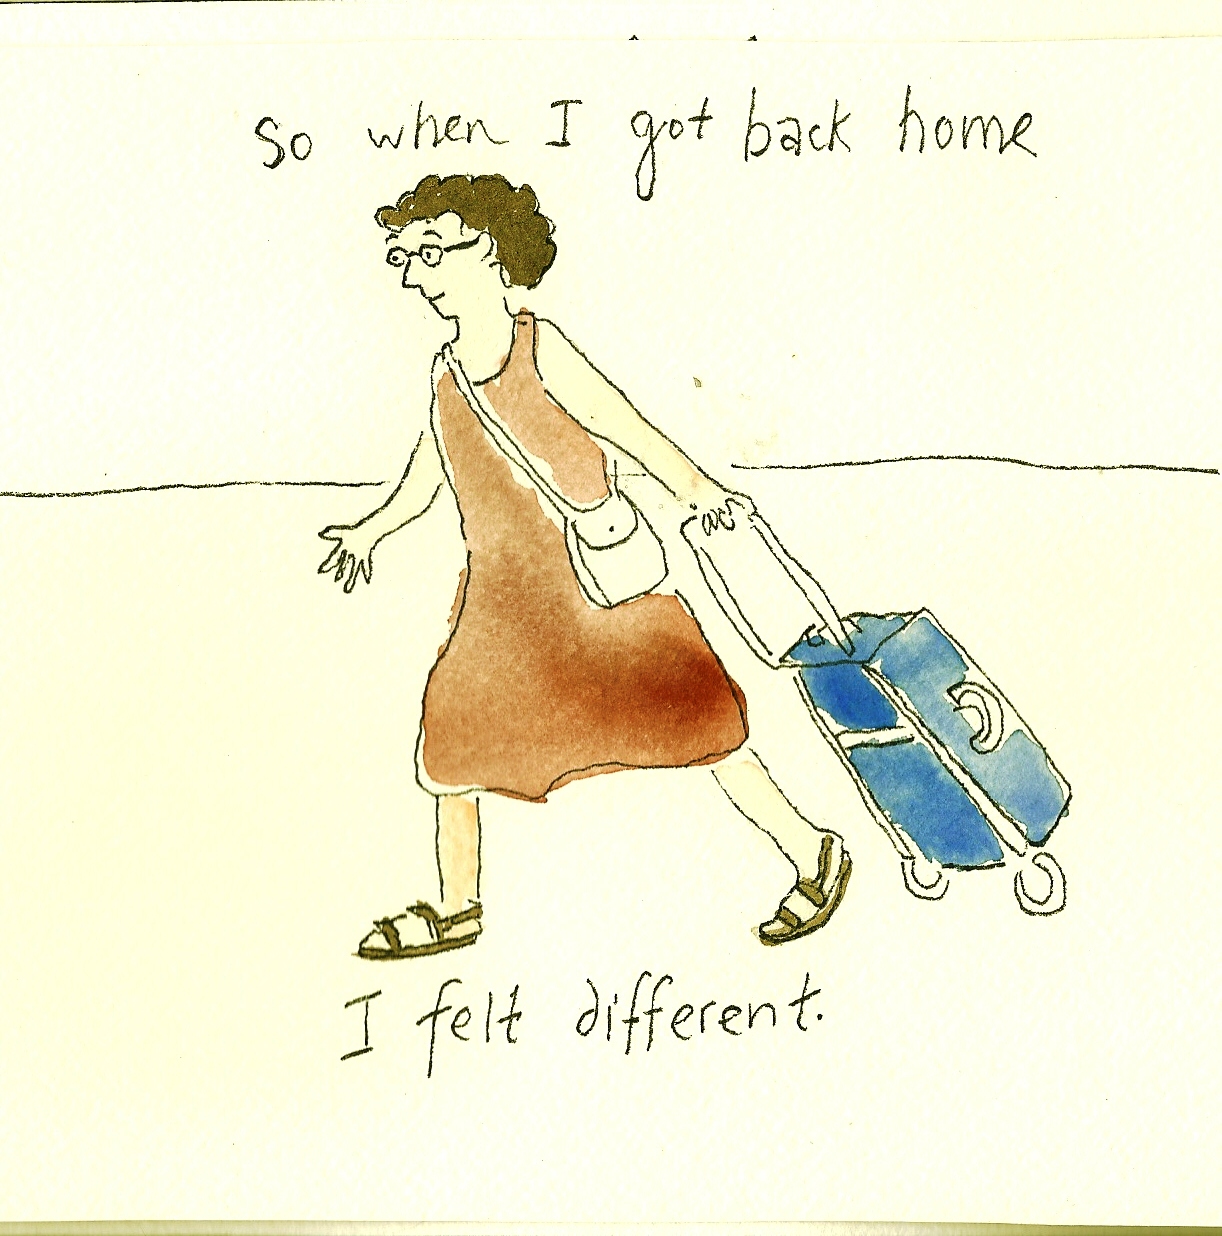 So when I got back home
I felt different.